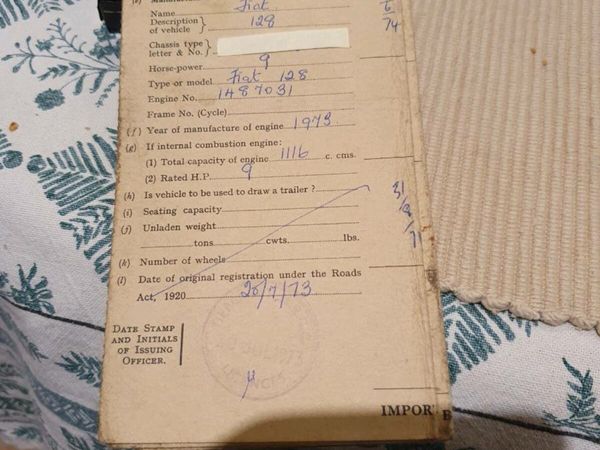 Name Fiat
Description of vehicle } 128
Chassis type letter & No. }
Horse-power 9
Type or model Fiat 128
Engine No. 1487031
Frame No. (Cycle)
(f) Year of manufacture of engine 1973
(g) If internal combustion engine:
(1) Total capacity of engine 1116 c. cms.
(2) Rated H.P. 9
(h) Is vehicle to be used to draw a trailer?
(i) Seating capacity
(j) Unladen weight
tons cwts. lbs.
(k) Number of wheels
(l) Date of original registration under the Roads
Act, 1920 20/7/73
DATE STAMP
AND INITIALS
OF ISSUING
OFFICER.
IMPOR
6
74
31